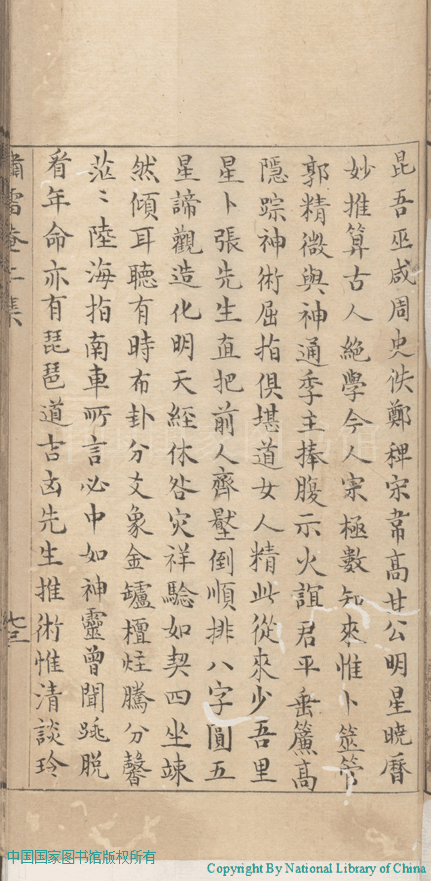 昆吾巫咸周史佚鄭稗宋韋高甘公明星曉曆
妙推算古人絶學今人宗極數知來惟卜筮管
郭精微與神通季主捧腹示火誼君平垂簾高
隱踪神術屈指俱堪道女人精此從來少吾里
星卜張先生直把前人齊壓倒順排八字圓五
星諦觀造化明天經休咎灾祥驗如契四坐竦
然傾耳聽有時布卦分爻象金罏檀炷騰分馨
茫〻陸海指南車所言必中如神靈曾聞跳脱
看年命亦有琵琶道吉凶先生推術惟清談玲
嘯雪菴二集
七三
中国国家图书馆版权所有
Copyright By National Library of China